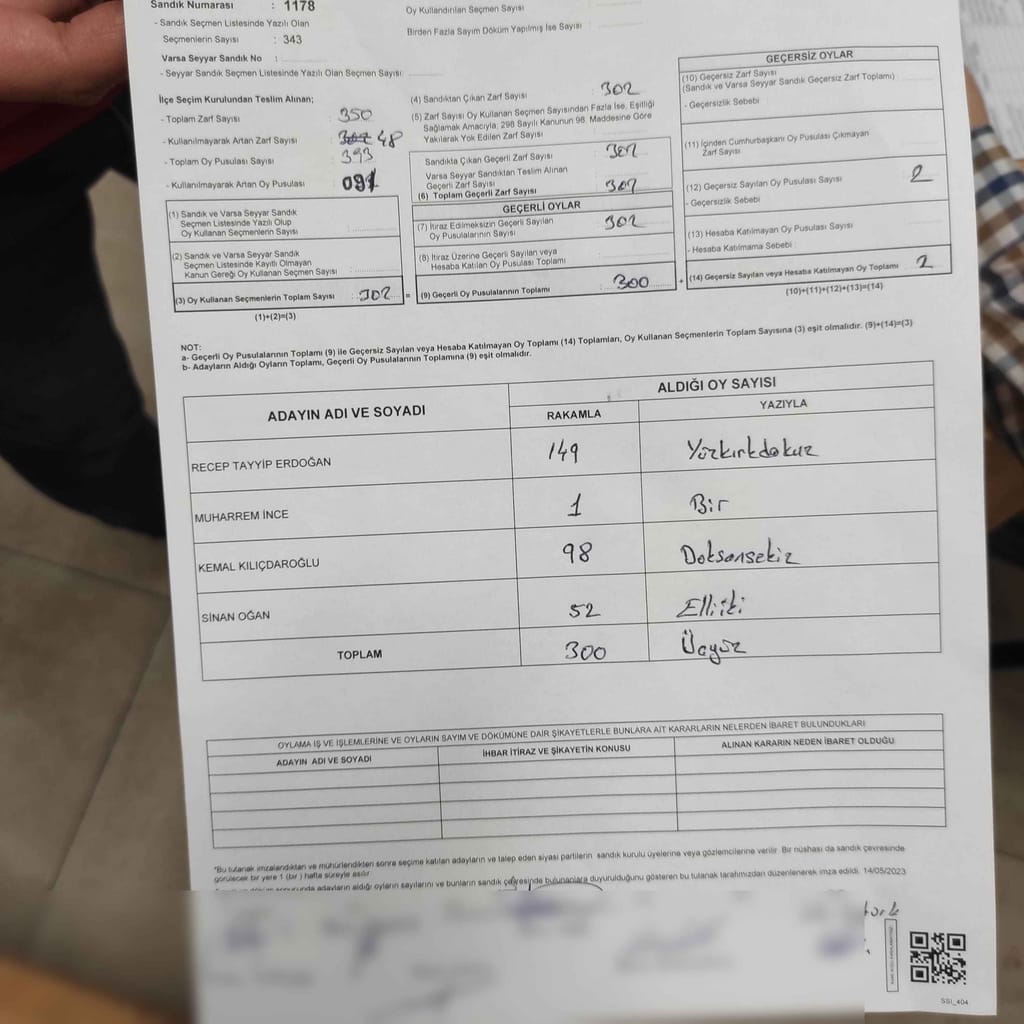 Sandık Numarası : 1178
- Sandık Seçmen Listesinde Yazılı Olan
Seçmenlerin Sayısı : 343
Varsa Seyyar Sandık No :
- Seyyar Sandık Seçmen Listesinde Yazılı Olan Seçmen Sayısı:
Oy Kullandırılan Seçmen Sayısı
Birden Fazla Sayım Döküm Yapılmış İse Sayısı
İlçe Seçim Kurulundan Teslim Alınan;
- Toplam Zarf Sayısı : 350
- Kullanılmayarak Artan Zarf Sayısı : 48
- Toplam Oy Pusulası Sayısı : 393
- Kullanılmayarak Artan Oy Pusulası : 091
(1) Sandık ve Varsa Seyyar Sandık
Seçmen Listesinde Yazılı Olup
Oy Kullanan Seçmenlerin Sayısı :
(2) Sandık ve Varsa Seyyar Sandık
Seçmen Listesinde Kayıtlı Olmayan
Kanun Gereği Oy Kullanan Seçmen Sayısı :
(3) Oy Kullanan Seçmenlerin Toplam Sayısı : 302 =
(1)+(2)=(3)
(4) Sandıktan Çıkan Zarf Sayısı : 302
(5) Zarf Sayısı Oy Kullanan Seçmen Sayısından Fazla İse, Eşitliği
Sağlamak Amacıyla, 298 Sayılı Kanunun 98. Maddesine Göre
Yakılarak Yok Edilen Zarf Sayısı :
Sandıkta Çıkan Geçerli Zarf Sayısı : 302
Varsa Seyyar Sandıktan Teslim Alınan
Geçerli Zarf Sayısı
(6) Toplam Geçerli Zarf Sayısı : 302
GEÇERLİ OYLAR
(7) İtiraz Edilmeksizin Geçerli Sayılan
Oy Pusulalarının Sayısı : 302
(8) İtiraz Üzerine Geçerli Sayılan veya
Hesaba Katılan Oy Pusulası Toplamı :
(9) Geçerli Oy Pusulalarının Toplamı : 300 +
GEÇERSİZ OYLAR
(10) Geçersiz Zarf Sayısı
(Sandık ve Varsa Seyyar Sandık Geçersiz Zarf Toplamı)
- Geçersizlik Sebebi
(11) İçinden Cumhurbaşkanı Oy Pusulası Çıkmayan
Zarf Sayısı
(12) Geçersiz Sayılan Oy Pusulası Sayısı : 2
- Geçersizlik Sebebi
(13) Hesaba Katılmayan Oy Pusulası Sayısı
- Hesaba Katılmama Sebebi :
(14) Geçersiz Sayılan veya Hesaba Katılmayan Oy Toplamı : 2
(10)+(11)+(12)+(13)=(14)
NOT:
a- Geçerli Oy Pusulalarının Toplamı (9) ile Geçersiz Sayılan veya Hesaba Katılmayan Oy Toplamı (14) Toplamları, Oy Kullanan Seçmenlerin Toplam Sayısına (3) eşit olmalıdır. (9)+(14)=(3)
b- Adayların Aldığı Oyların Toplamı, Geçerli Oy Pusulalarının Toplamına (9) eşit olmalıdır.
ADAYIN ADI VE SOYADI
ALDIĞI OY SAYISI
RAKAMLA YAZIYLA
RECEP TAYYİP ERDOĞAN 149 Yüzkırkdokuz
MUHARREM İNCE 1 Bir
KEMAL KILIÇDAROĞLU 98 Doksansekiz
SİNAN OĞAN 52 Elliiki
TOPLAM 300 Üçyüz
OYLAMA İŞ VE İŞLEMLERİNE VE OYLARIN SAYIM VE DÖKÜMÜNE DAİR ŞİKAYETLERLE BUNLARA AİT KARARLARIN NELERDEN İBARET BULUNDUKLARI
ADAYIN ADI VE SOYADI İHBAR İTİRAZ VE ŞİKAYETİN KONUSU ALINAN KARARIN NEDEN İBARET OLDUĞU
*Bu tutanak imzalandıktan ve mühürlendikten sonra seçime katılan adayların ve talep eden siyasi partilerin sandık kurulu üyelerine veya gözlemcilerine verilir. Bir nüshası da sandık çevresinde
görülecek bir yere 1 (bir) hafta süreyle asılır.
adayların aldığı oyların sayılarını ve bunların sandık çevresinde bulunanlara duyurulduğunu gösteren bu tutanak tarafımızdan düzenlenerek imza edildi. 14/05/2023
SSI_404